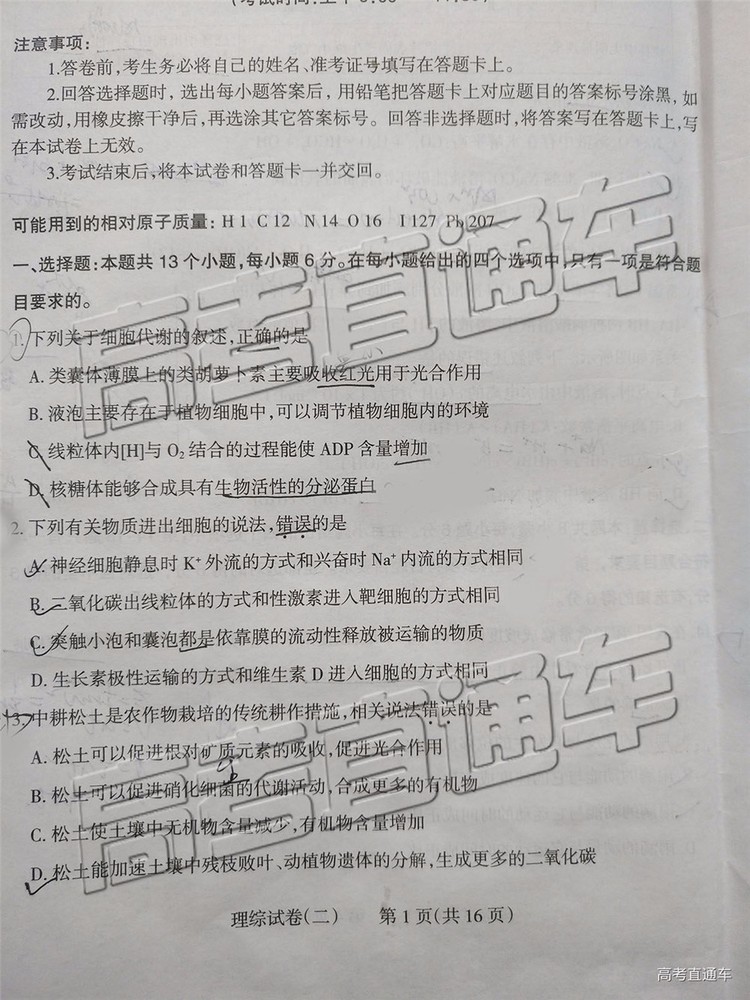 注意事项:
1.答卷前,考生务必将自己的姓名、准考证号填写在答题卡上。
2.回答选择题时,选出每小题答案后,用铅笔把答题卡上对应题目的答案标号涂黑,如
需改动,用橡皮擦干净后,再选涂其它答案标号。回答非选择题时,将答案写在答题卡上,写
在本试卷上无效。
3.考试结束后,将本试卷和答题卡一并交回。
可能用到的相对原子质量: H 1 C 12 N 14 O 16 I 127 Pb 207
一、选择题:本题共13个小题,每小题6分。在每小题给出的四个选项中,只有一项是符合题
目要求的。
1.下列关于细胞代谢的叙述,正确的是
A. 类囊体薄膜上的类胡萝卜素主要吸收红光用于光合作用
B. 液泡主要存在于植物细胞中,可以调节植物细胞内的环境
C. 线粒体内[H]与O₂结合的过程能使ADP含量增加
D. 核糖体能够合成具有生物活性的分泌蛋白
2. 下列有关物质进出细胞的说法,错误的是
A. 神经细胞静息时K⁺外流的方式和兴奋时Na⁺内流的方式相同
B. 二氧化碳出线粒体的方式和性激素进入靶细胞的方式相同
C. 突触小泡和囊泡都是依靠膜的流动性释放被运输的物质
D. 生长素极性运输的方式和维生素D进入细胞的方式相同
3. 中耕松土是农作物栽培的传统耕作措施,相关说法错误的是
A. 松土可以促进根对矿质元素的吸收,促进光合作用
B. 松土可以促进硝化细菌的代谢活动,合成更多的有机物
C. 松土使土壤中无机物含量减少,有机物含量增加
D. 松土能加速土壤中残枝败叶、动植物遗体的分解,生成更多的二氧化碳
理综试卷(二) 第1页(共16页)
高考直通车
高考直通车
高考直通车